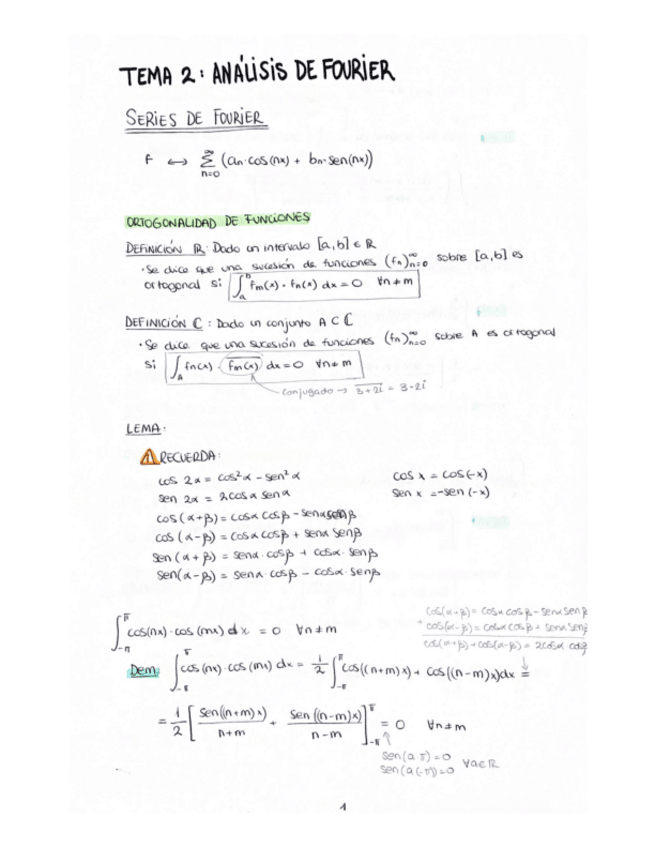 TEMA 2: ANÁLISIS DE FOURIER
SERIES DE FOURIER
F ↔ ∑_{n=0}^{∞} (an·cos(nx) + bn·sen(nx))
ORTOGONALIDAD DE FUNCIONES
DEFINICIÓN ℝ: Dado un intervalo [a,b] ∈ ℝ
·Se dice que una sucesión de funciones (fn)_{n=0}^{∞} sobre [a,b] es
ortogonal si ∫_a^b fm(x)·fn(x) dx = 0 ∀n≠m
DEFINICIÓN ℂ: Dado un conjunto A ⊂ ℂ
·Se dice que una sucesión de funciones (fn)_{n=0}^{∞} sobre A es ortogonal
si ∫_A fn(x)·\overline{fm(x)} dx = 0 ∀n≠m
conjugado → \overline{3+2i} = 3-2i
LEMA:
⚠ RECUERDA:
cos 2α = cos²α - sen²α cos x = cos(-x)
sen 2α = 2cosα senα sen x = -sen(-x)
cos(α+β) = cosα cosβ - senα senβ
cos(α-β) = cosα cosβ + senα senβ
sen(α+β) = senα·cosβ + cosα·senβ
sen(α-β) = senα·cosβ - cosα·senβ
cos(α+β) = cosα cosβ - senα senβ
+ cos(α-β) = cosα cosβ + senα senβ
cos(α+β) + cos(α-β) = 2cosα·cosβ
∫_{-π}^{π} cos(nx)·cos(mx) dx = 0 ∀n≠m
Dem ∫_{-π}^{π} cos(nx)·cos(mx) dx = 1/2 ∫_{-π}^{π} cos((n+m)x) + cos((n-m)x) dx =
= 1/2 [sen((n+m)x)/(n+m) + sen((n-m)x)/(n-m)]_{-π}^{π} = 0 ∀n≠m
sen(a·π) = 0
sen(a(-π)) = 0 ∀a∈ℝ
1